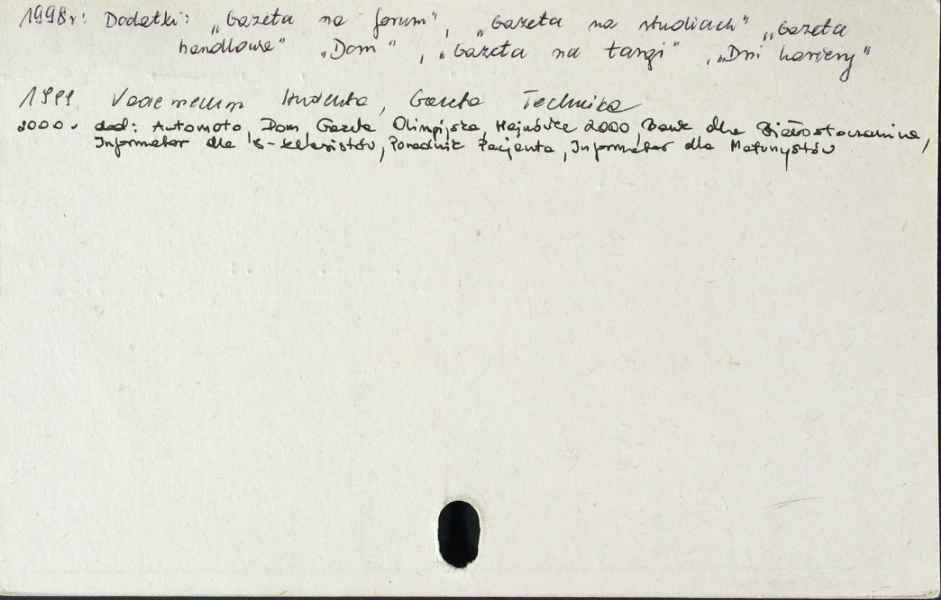 1998r: Dodatki: „Gazeta na forum", „Gazeta na studiach" „Gazeta
handlowa" „Dom", „Gazeta na targi", „Dni kariery"
1999 Vademecum studenta, Gazeta Technika
2000r dod: Automoto, Dom, Gazeta Olimpijska, Hajnówka 2000, Bank dla Białostoczanina,
Informator dla 8-klasistów, Poradnik Pacjenta, Informator dla Maturzystów